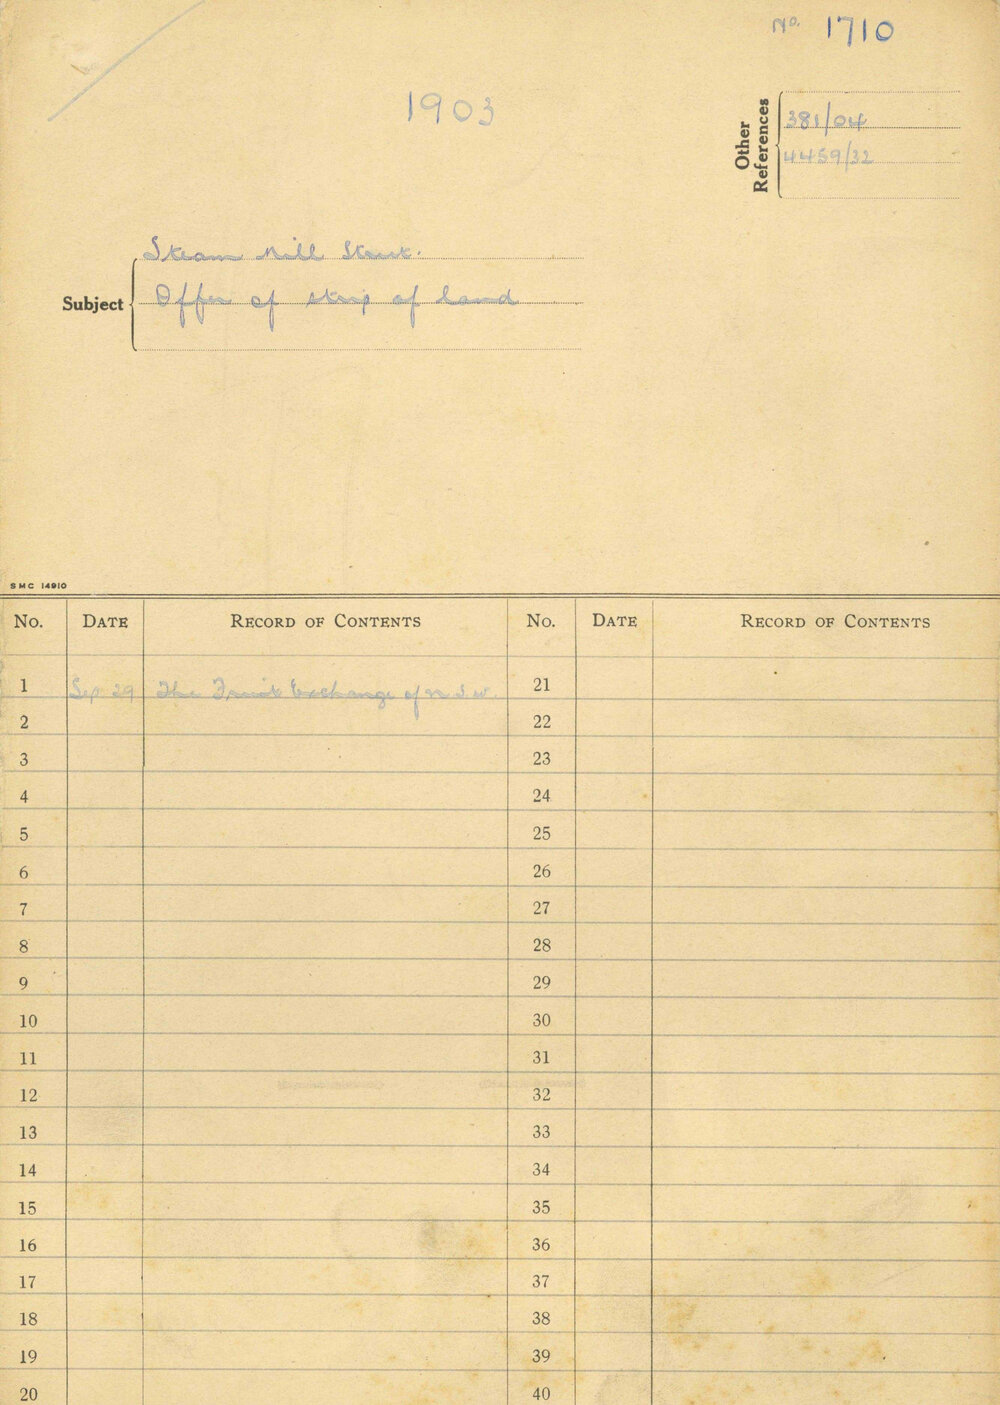 No. 1710
1903
Other References
381/04
4459/32
Subject
Steam Mill Street.
Offer of strip of land
SMC 14910
No. DATE RECORD OF CONTENTS No. DATE RECORD OF CONTENTS
1 Sep 29 The Fruit Exchange of N.S.W. 21
2 22
3 23
4 24
5 25
6 26
7 27
8 28
9 29
10 30
11 31
12 32
13 33
14 34
15 35
16 36
17 37
18 38
19 39
20 40